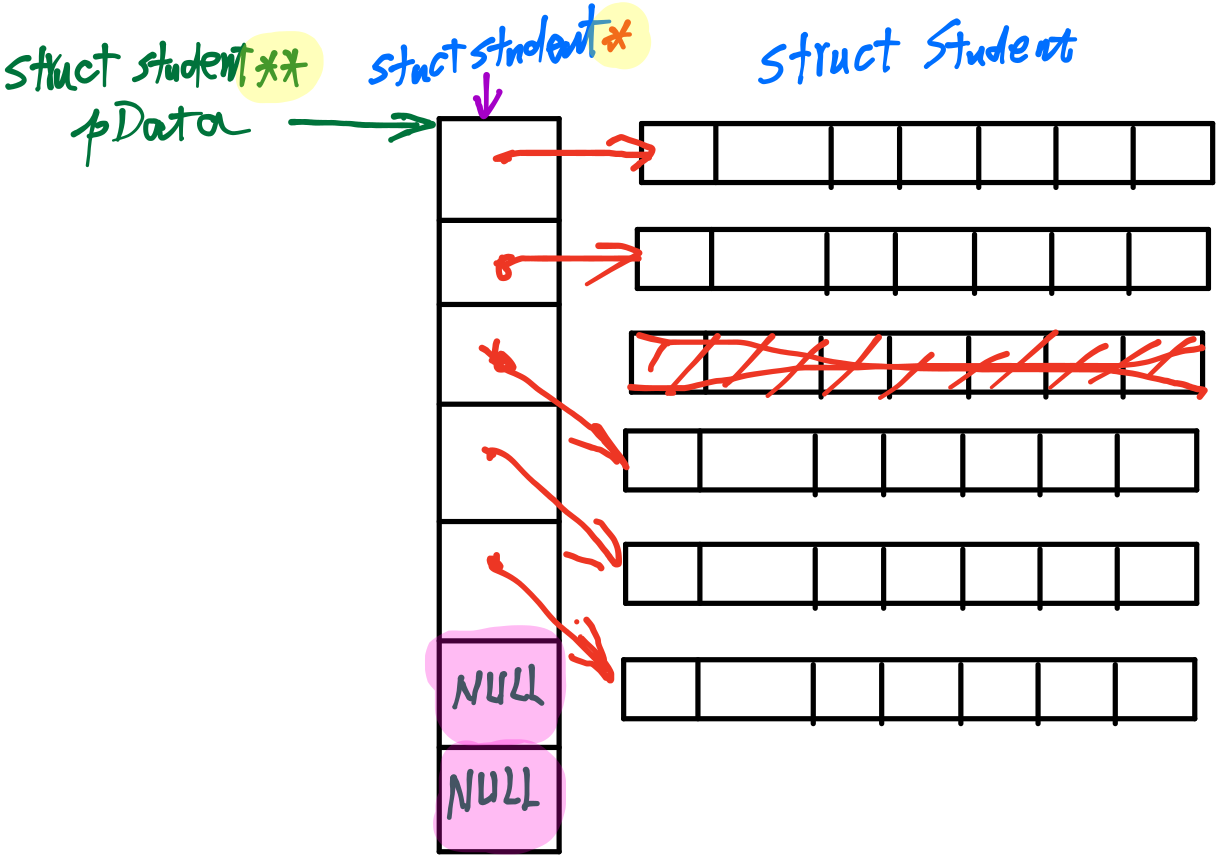 struct student**
pData
stuct student*
struct Student
NULL
NULL